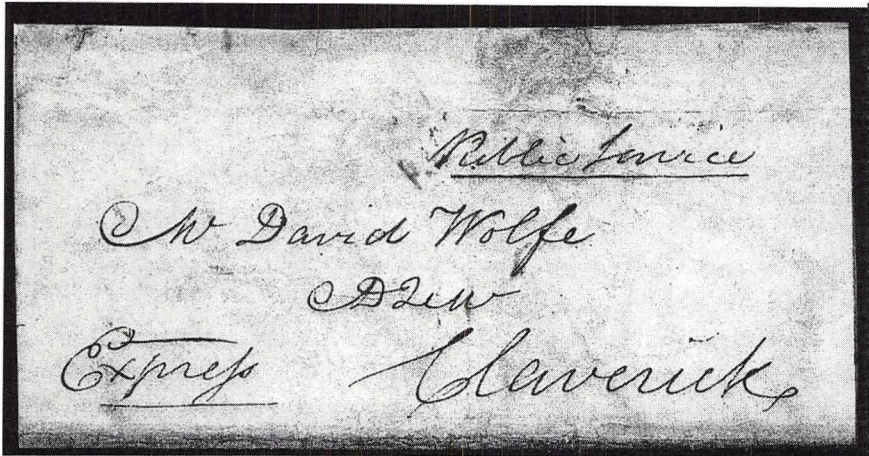 Public Service
Mr David Wolfe
DQM
Express Claverick